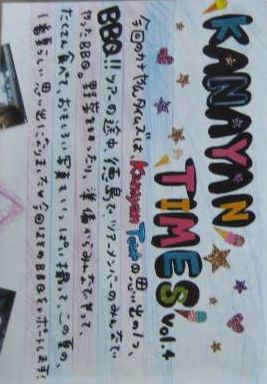 KANAYAN
TIMES Vol.4
今回のカナやんタイムズは、Kanayan Tourの思い出の1つ、
BBQ!! ツアーの途中、徳島でツアーメンバーのみんなで
やったBBQ。野菜を切ったり、準備からみんなでやって、
たくさん食べて、おもしろい写真もいっぱい撮って、この夏の、
1番楽しい思い出になりました♥今回はそのBBQをレポートします!